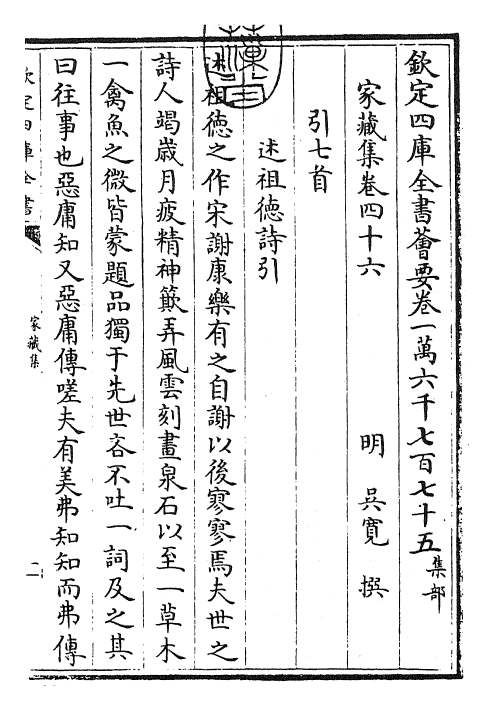 欽定四庫全書薈要卷一萬六千七百七十五集部
家藏集卷四十六 明 吳寬 撰
引七首
述祖德詩引
述祖德之作宋謝康樂有之自謝以後寥寥焉夫世之
詩人竭歲月疲精神簸弄風雲刻畫泉石以至一草木
一禽魚之微皆蒙題品獨于先世吝不吐一詞及之其
曰往事也惡庸知又惡庸傳嗟夫有美弗知知而弗傳
欽定四庫全書
家藏集
二